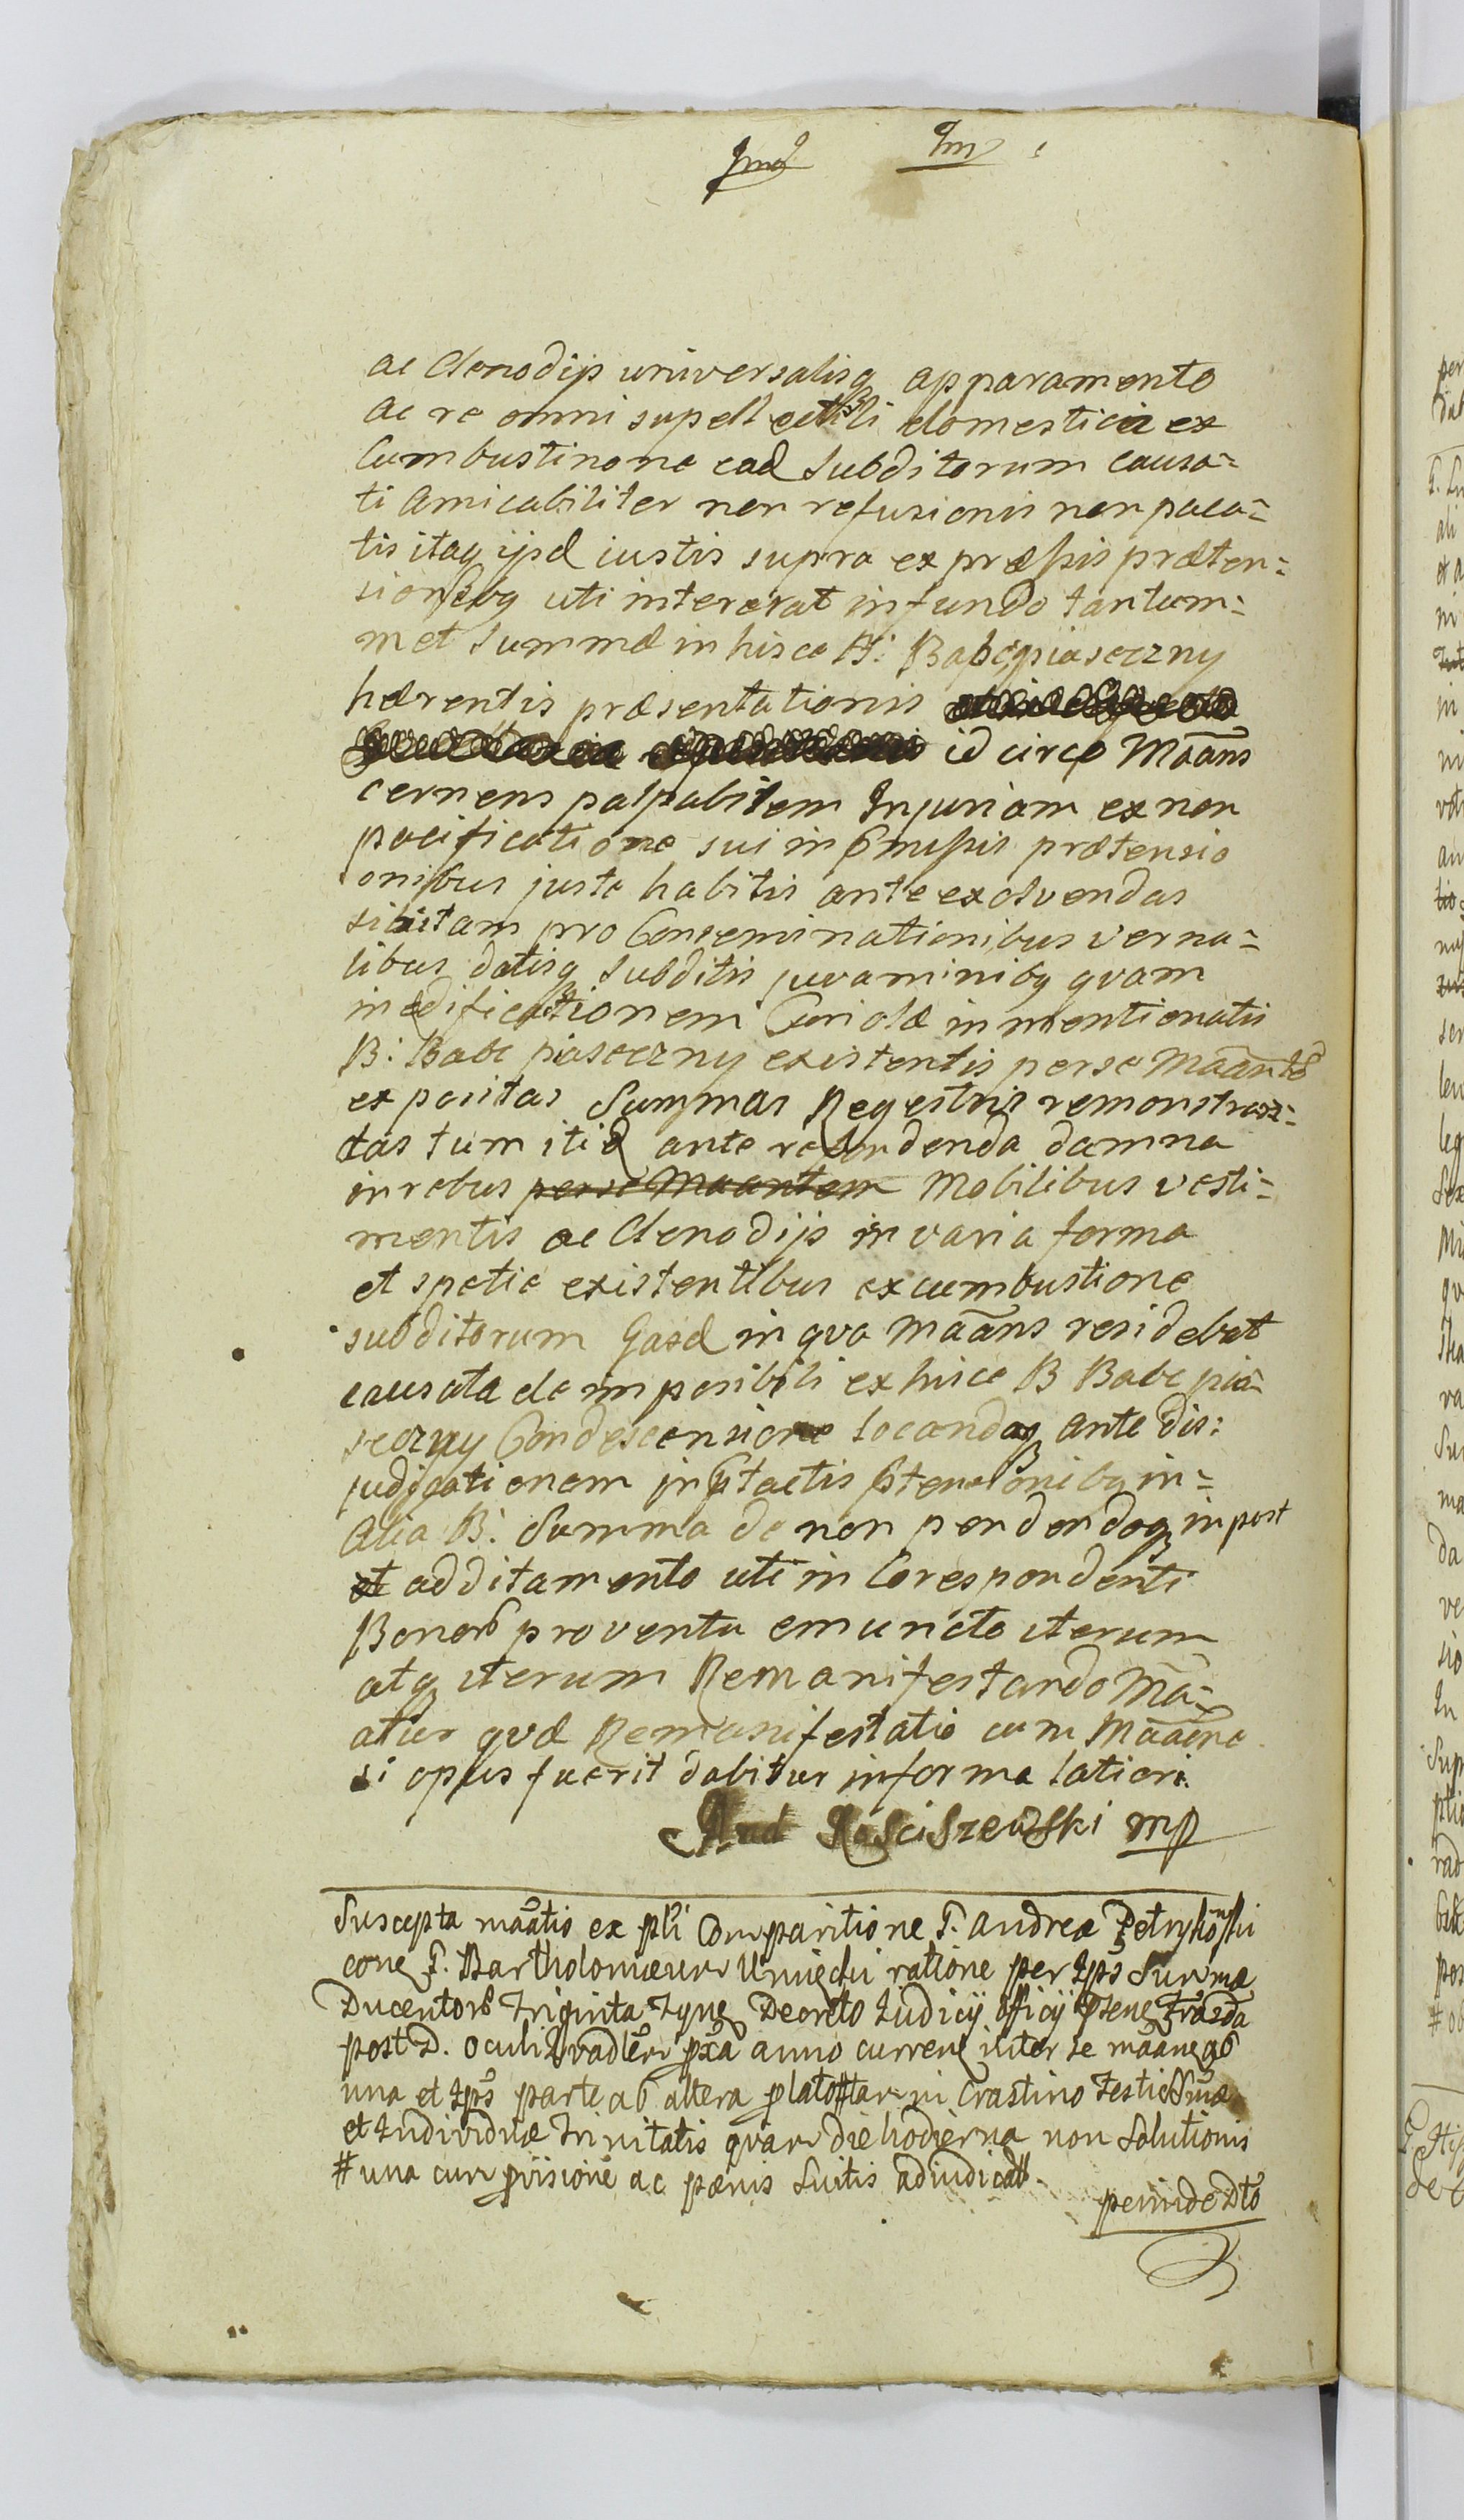 ac Clenodijs universalisq apparamento
ac re omni supell ectili domestica ex
Cumbustinone ead Subditorum causa=
ti Amicabiliter non refusionis non paca=
tis itaq ijsd iustis supra ex præssis præten=
sionibq uti intererat in fundo tantum=
met Summæ in hisce B: Babepiaseczny
hærentis præsentationis
id circo Mãans
cernens palpabilem Injuriam ex non
pacificatione sui in præmissis prætensio
onibus juste habitis ante exolvendas
sibi tam pro Conseminationibus verna=
libus datisq Subditis juvaminibq quam
inædificationem Curiolæ in mentionatis
B: Babe piaseczny existentis per se Mãantē
expositas Summas Regestris remonstran=
das tum itid ante refundenda damna
in rebus per se Maantem Mobilibus vesti=
mentis ac Clenodijs in varia forma
et spetie existentibus ex cumbustione
subditorum Casæ in qva Mãans residebat
causata de imposibili ex hisce B Babe pia=
seczny Condescensione locandaq ante dis:
judicationem in ptactis ptensionibq in=
Alia B: Summa de non perdendoq in post
et additamento uti in Corespondenti
Bonorū proventu emuncto iterum
atq iterum Remanifestando Mã=
atur qvæ Remanifestatio cum Mãaōne
si opus fuerit dabitur informa latiori.
And Rosciszewski mp
Suscepta mãatio ex pti Comparitione G. Andreæ Petrykoński
conq G. Bartholomæum Uniechi ratione per Ips Summæ
Ducentorū Triginta Tynq Decreto Judicij Officij Psenq
post D. Oculi Qvadler pxa anno currenq inter se mãanq ab
una et Ips parte ab altera plato in Crastino Festi SSmæ
et Individuæ Trinitatis qvam die hodierna non Solutionis
# una cum pvisione ac pænis Luitis adiudicat
perinde Dto